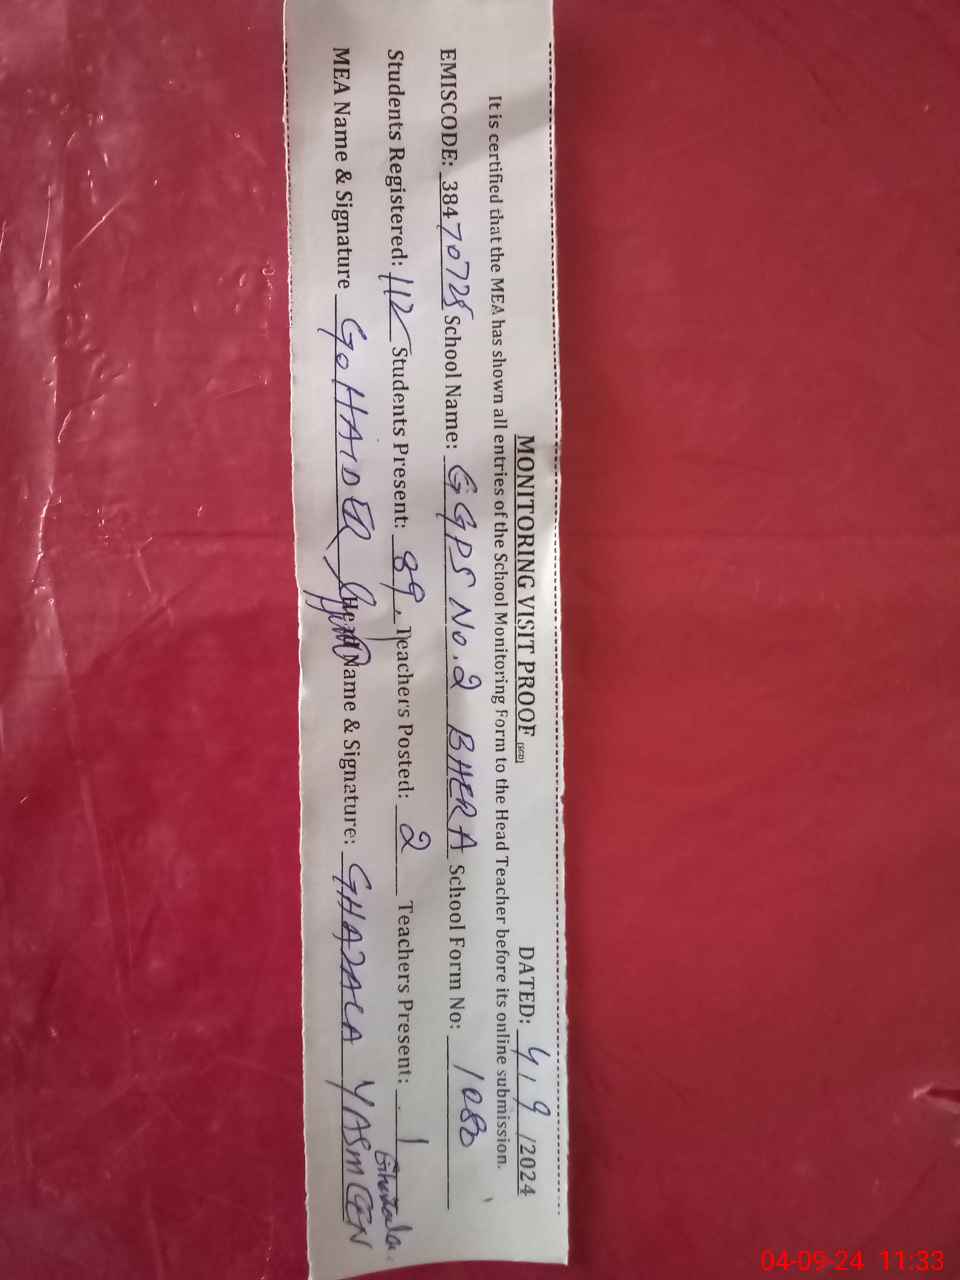 MONITORING VISIT PROOF (SED) DATED: 4.9/2024
It is certified that the MEA has shown all entries of the School Monitoring Form to the Head Teacher before its online submission.
EMISCODE: 38470728 School Name: GGPS No.2 BHERA School Form No: 1080
Students Registered: 112 Students Present: 89 Teachers Posted: 2 Teachers Present: 1
MEA Name & Signature Go HAIDER Head Name & Signature: GHAZALA YASMEEN
04-09-24 11:33